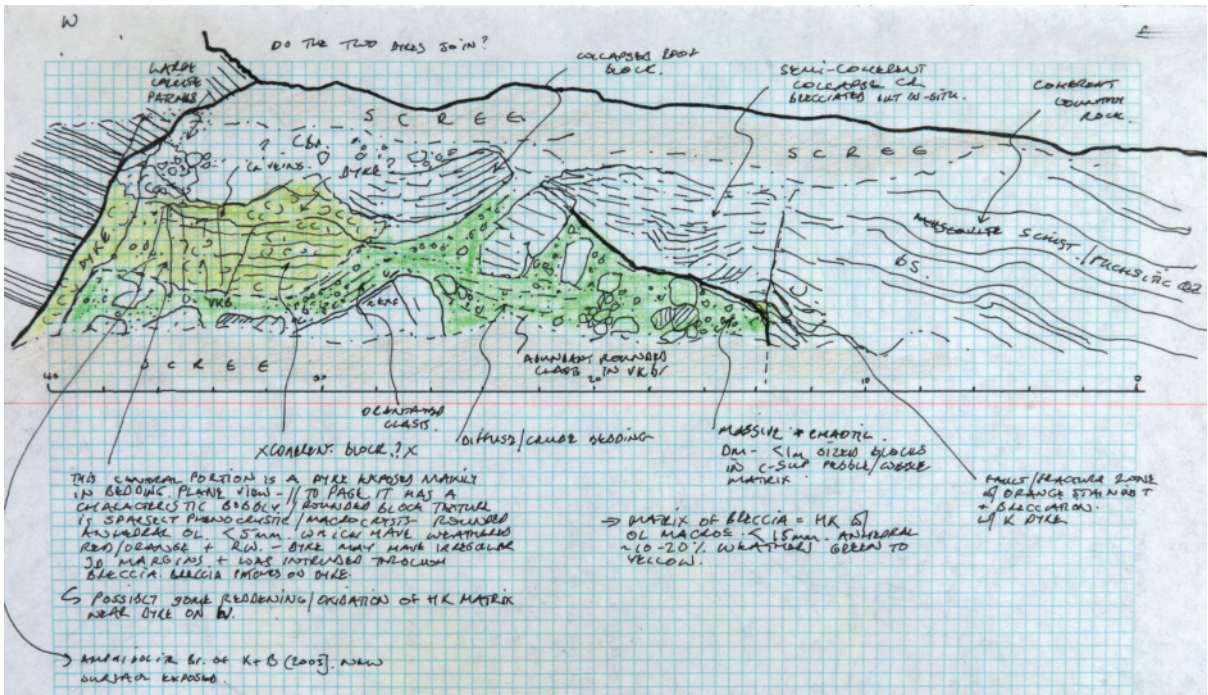 W
E
DO THE TWO DYKES JOIN?
LARGE
CALCITE
COLLAPSED ROOF
BLOCK.
SEMI-COHERENT
COLLAPSE CR
BRECCIATED BUT IN-SITU.
COHERENT
COUNTRY
ROCK.
SCREE
SCREE
?
CR VEINS
DYKE?
DYKE
VKB
MUSCOVITE SCHIST / FUCHSITIC QZ
BS.
SCREE
ABUNDANT ROUNDED
CLASTS IN VKB/
40
30
20
10
0
ORIENTATED
CLASTS.
XCOHERENT BLOCK.?X
DIFFUSE/CRUDE BEDDING
MASSIVE + CHAOTIC.
DM- <1M SIZED BLOCKS
IN C-SUP PEBBLE/
MATRIX
FAULT/FRACTURE ZONE
W/ ORANGE STAINING +
+ BRECCIATION.
W/ K DYKE
THIS CENTRAL PORTION IS A DYKE EXPOSED MAINLY
IN BEDDING PLANE VIEW - // TO PAGE IT HAS A
CHARACTERISTIC BOBBLY / ROUNDED BLOCK TEXTURE
IS SPARSELY PHENOCRYSTIC / MACROCRYSTS - ROUNDED
ANHEDRAL OL. <5mm. WHICH HAVE WEATHERED
RED/ORANGE + - DYKE MAY HAVE IRREGULAR
3D MARGINS + WAS INTRUDED THROUGH
BRECCIA. BRECCIA PATCHES ON DYKE.
→ MATRIX OF BRECCIA = HK W/
OL MACROS. <15mm. ANHEDRAL
~10-20% WEATHERS GREEN TO
YELLOW.
↪ POSSIBLY SOME REDDENING/OXIDATION OF HK MATRIX
NEAR DYKE ON W.
→ BR. OF K+B (2003). NEW
SURFACE EXPOSED.